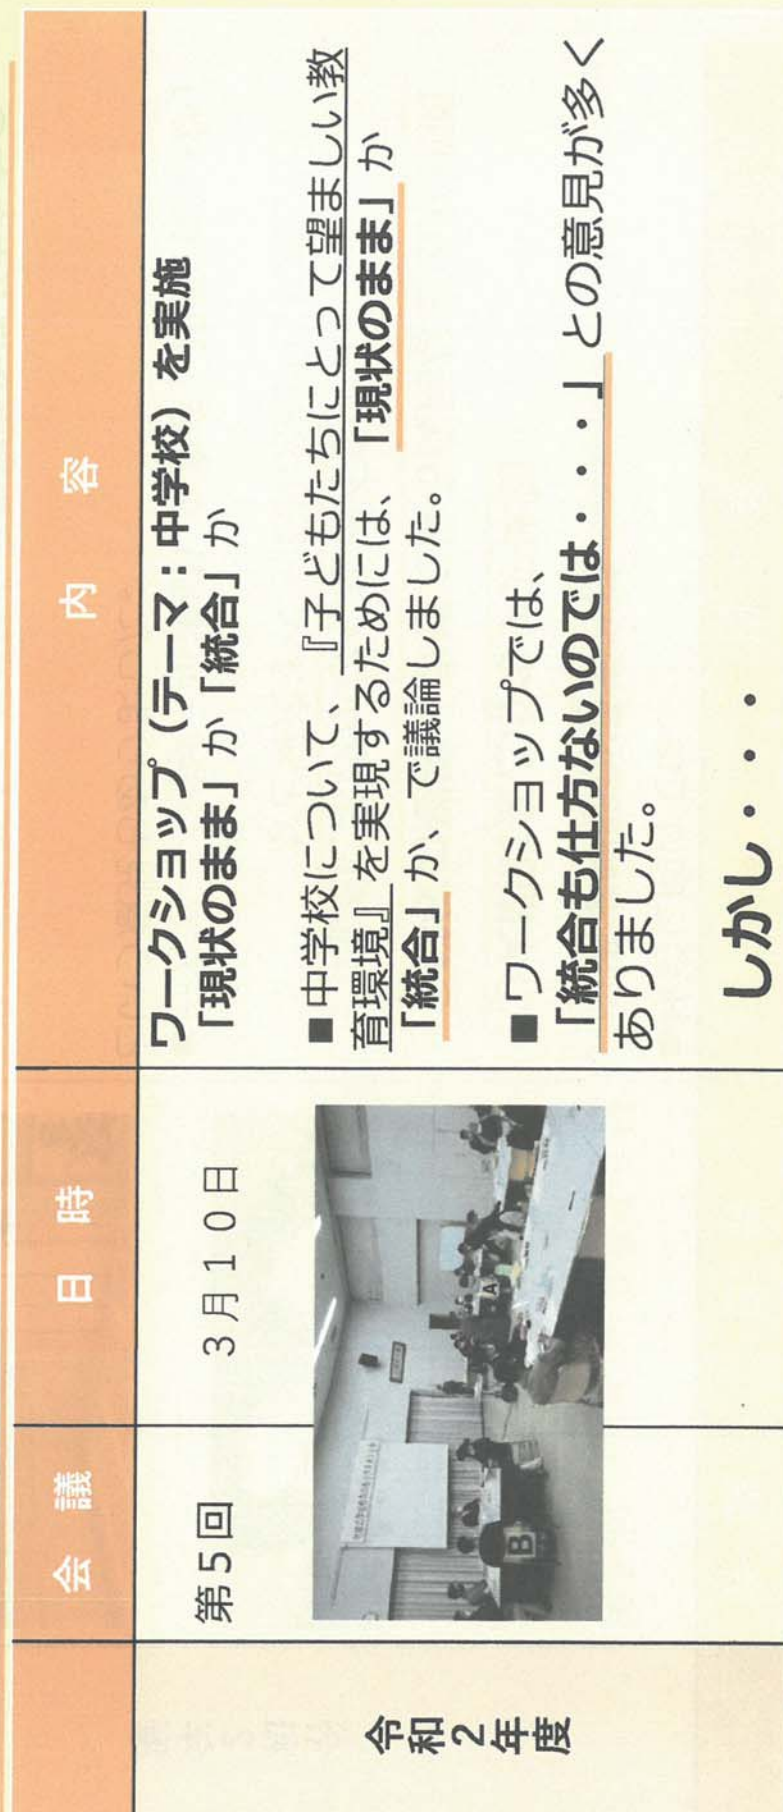 会　議
日　時
内　容
令和２年度
第５回
３月１０日
ワークショップ（テーマ：中学校）を実施
「現状のまま」か「統合」か
■中学校について、『子どもたちにとって望ましい教
育環境』を実現するためには、「現状のまま」か
「統合」か、で議論しました。
■ワークショップでは、
「統合も仕方ないのでは・・・」との意見が多く
ありました。
しかし・・・
A
B